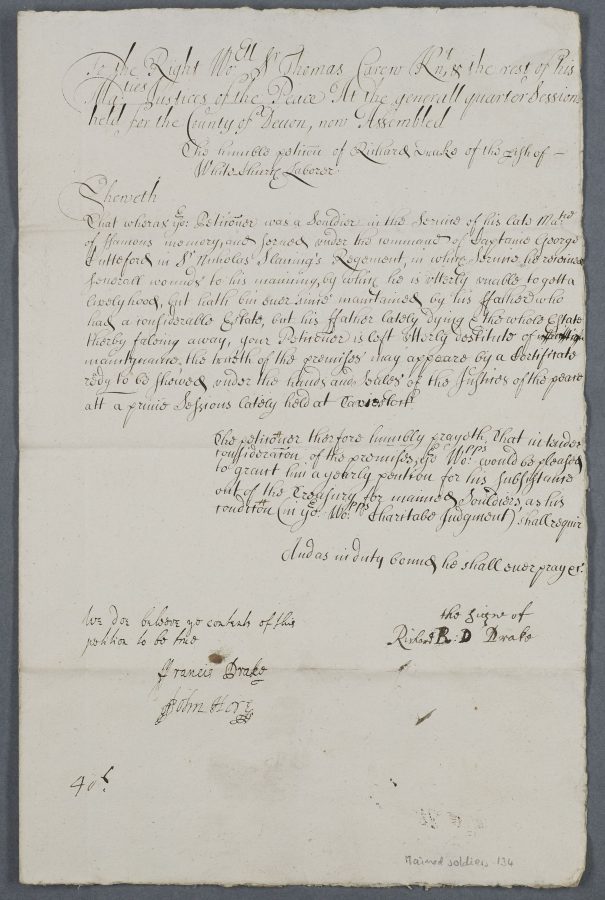 To the Right Wo:ll Sr Thomas Carew Knt, & the rest of his
Ma:ties Justices of the Peace At the generall quarter Sessions
held for the County of Deuon, now Assembled
The humble petic̄on of Richard Drake of the pish of
White Church Laborer
Sheweth
That wheras yor: Petic̄oner was a Souldier in the Seruice of his late Matie
of ffamous memory, and serued under the command of Captaine George
Cutteford in Sr Nicholas Slaning's Regement, in which Seruice he receiued
seuerall wounds to his maiming, by which he is vtterly vnable to gett a
livelyhood, but hath bin ever since maintained by his ffather who
had a considerable Estate, but his ffather lately dying & the whole Estate
therby falling away, your Petic̄oner is left vtterly destitute of
maintynance the trueth of the premises may appeare by a Certificate
redy to be shewed vnder the hands and Seales of the Justices of the peace
att a privie Sessions lately held at Tavestock
The petic̄oner therfore humbly prayeth, That in tender
consideration of the premises, yor Wo:pps would be pleased
to grant him a yearly pention for his subsistance
out of the Treasury for maimed Souldiers, as his
condic̄on (in yor: Wo:pps Charitabe Judgment) shall requir
And as in duty bound he shall euer pray &c.
We doe beleeve ye contents of this
petition to be true
the signe of
Richard R: D Drake
Francis Drake
John Hore
40s.
Maimed soldiers 134